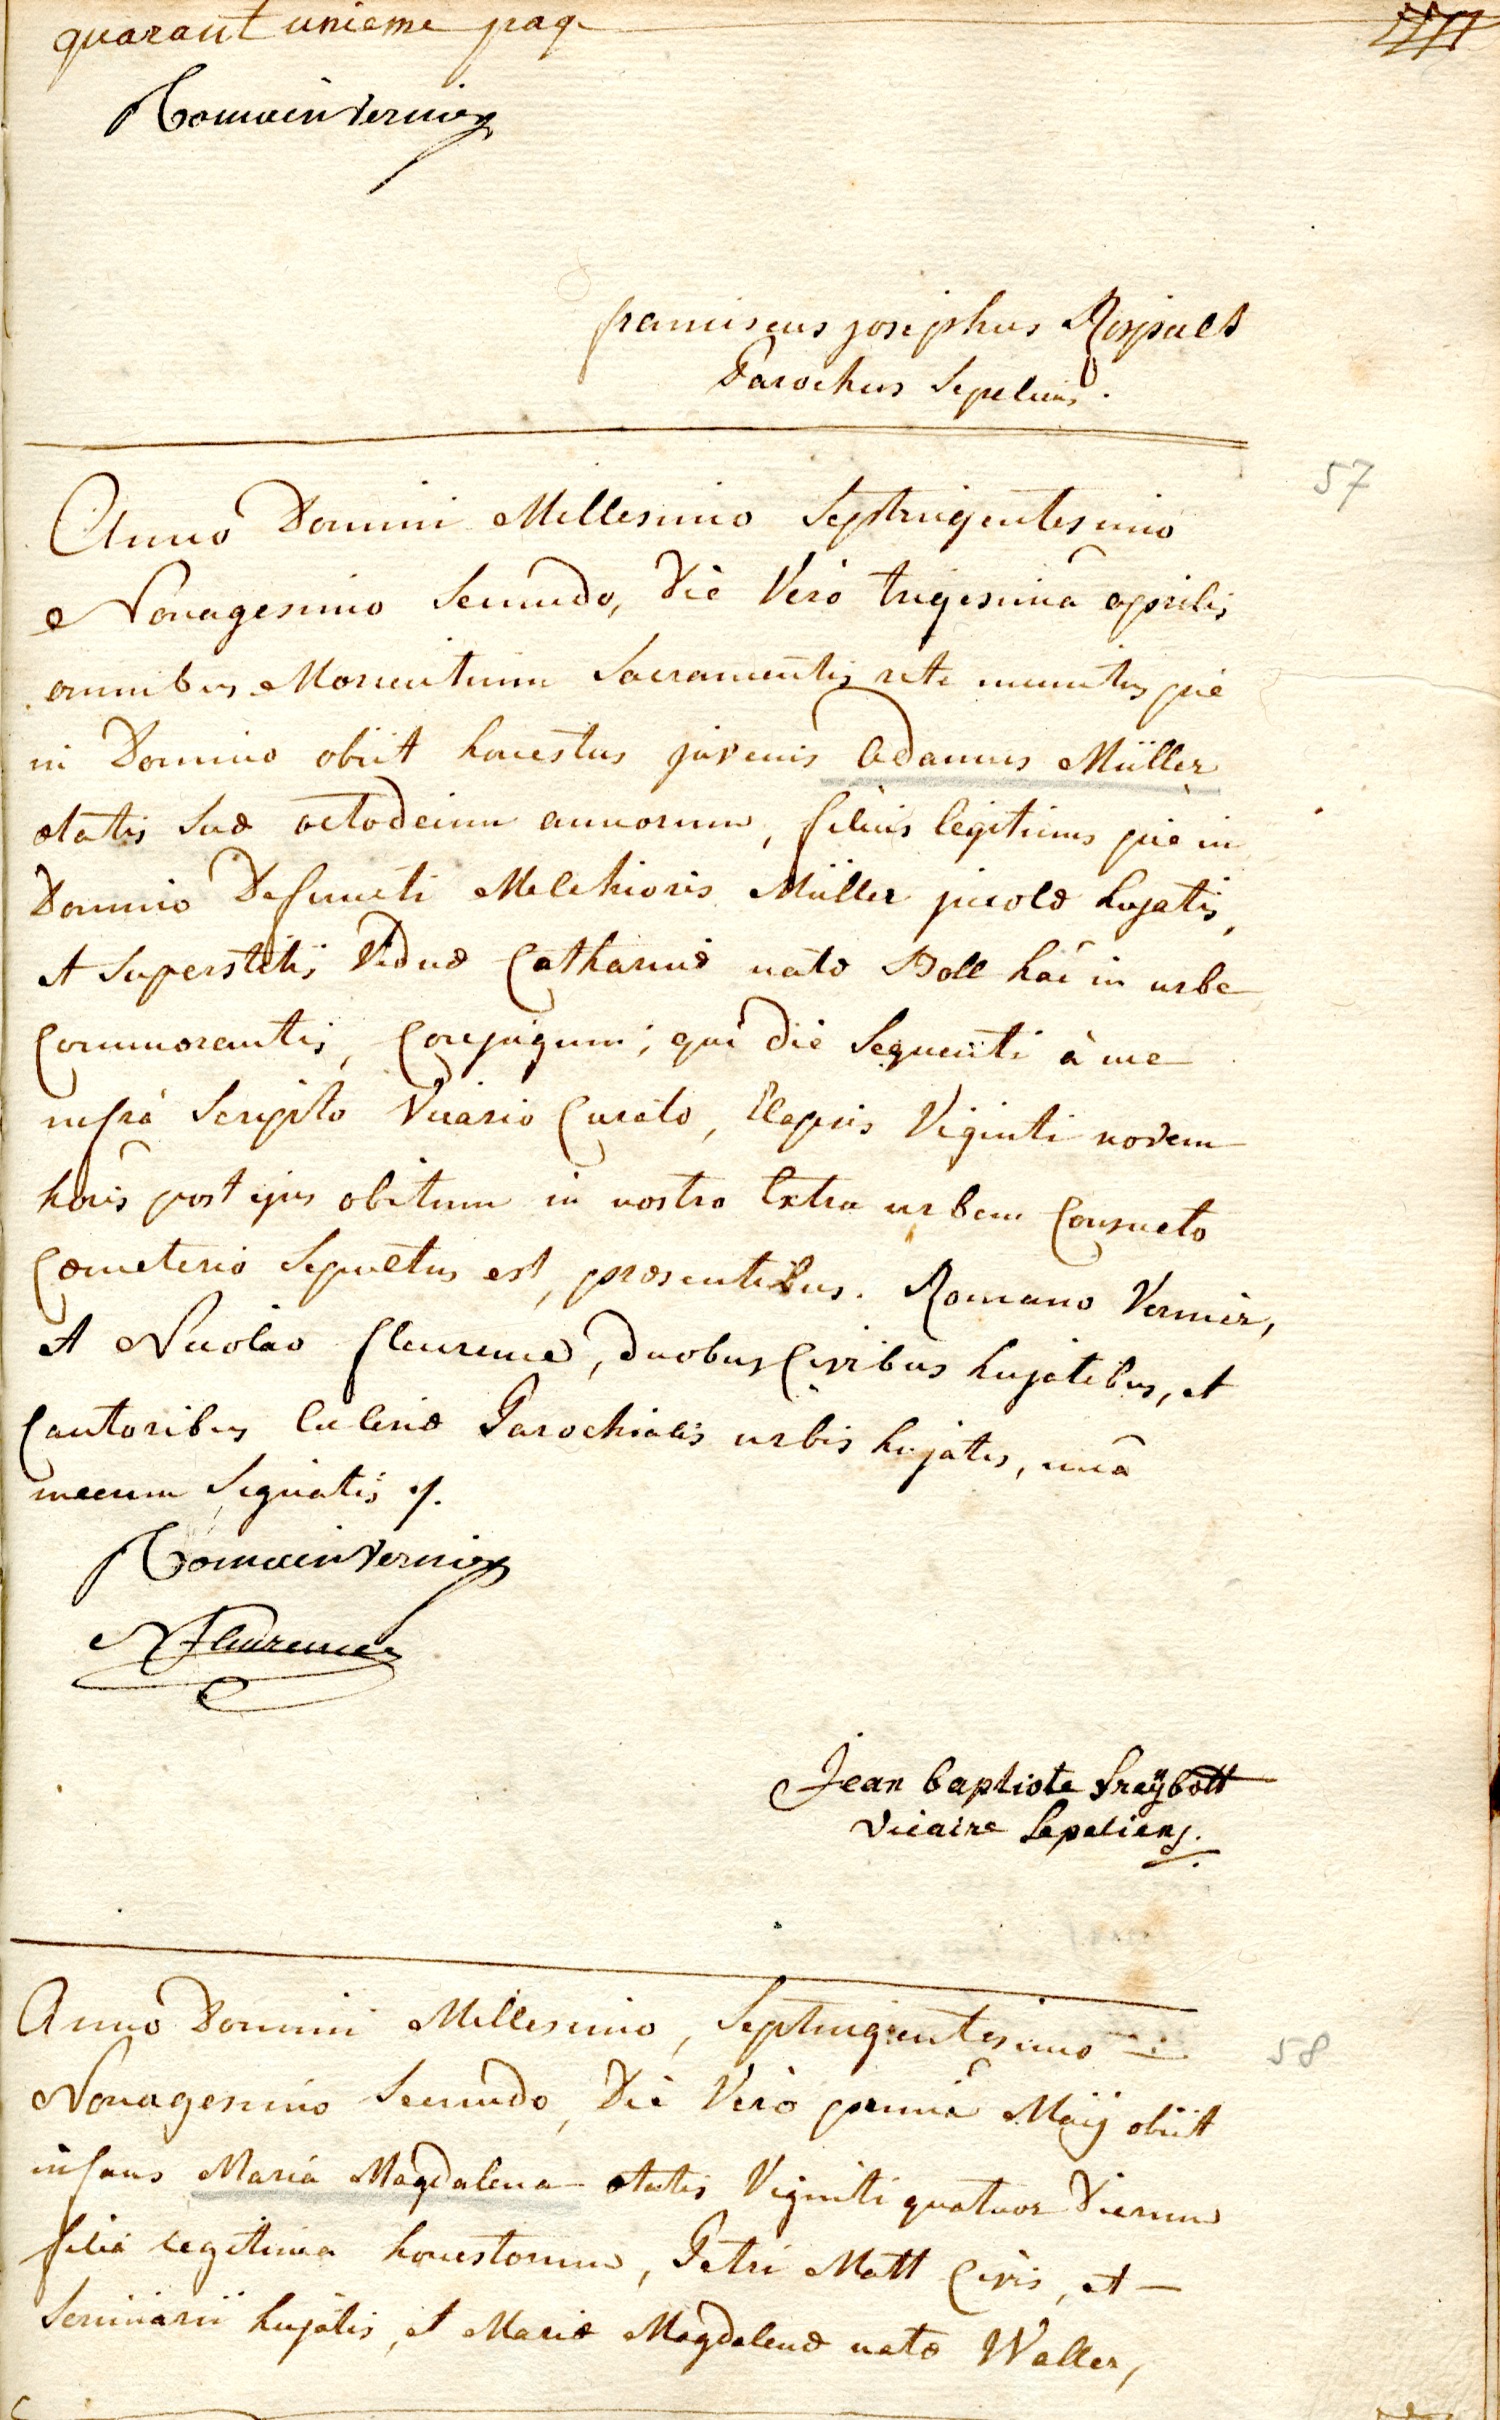 quarant unieme pag
Romain Vernier
franciscus josephus
Parochus Sepeliens.
57
Anno Domini Millesimo Septingentesimo
Nonagesimo Secundo, Die Vero trigesima aprilis
omnibus Morientium Sacramentis rite munitus pie
in Domino obiit honestus juvenis Adamus Müller
ætatis suæ octodecim annorum, filius legitimus pie in
Domino Defuncti Melchioris Müller incolæ hujatis,
et Superstitis Viduæ Catharinæ natæ Boll hac in urbe
Commorantis, Conjugum; qui die Sequenti à me
infra Scripto Vicario Curato, Elapsis Viginti novem
horis post ejus obitum in nostro Extra urbem Consueto
Cœmeterio Sepultus est, præsentibus. Romano Vernier,
et Nicolao fleurence, duobus Civibus hujatibus, et
Cantoribus Ecclesiæ Parochialis urbis hujatis, unà
mecum Signatis
Romain Vernier
N Fleurence
Jean baptiste freÿbott
vicaire Sepeliens.
58
Anno Domini Millesimo, Septingentesimo
Nonagesimo Secundo, Die Vero prima Maij obiit
infans Maria Magdalena ætatis Viginti quatuor Dierum
filia legitima honestorum, Petri Matt Civis, et
hujatis, et Mariæ Magdalenæ natæ Waller,